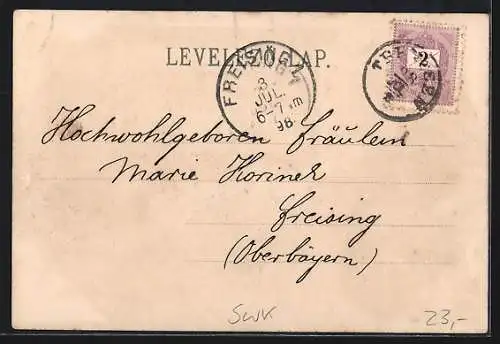 LEVELEZŐ-LAP.
FREISING
8
JUL.
6-7 Nm
98
2
Hochwohlgeboren Fräulein
Marie Horinek
Freising
(Oberbayern)
SWK
23,-